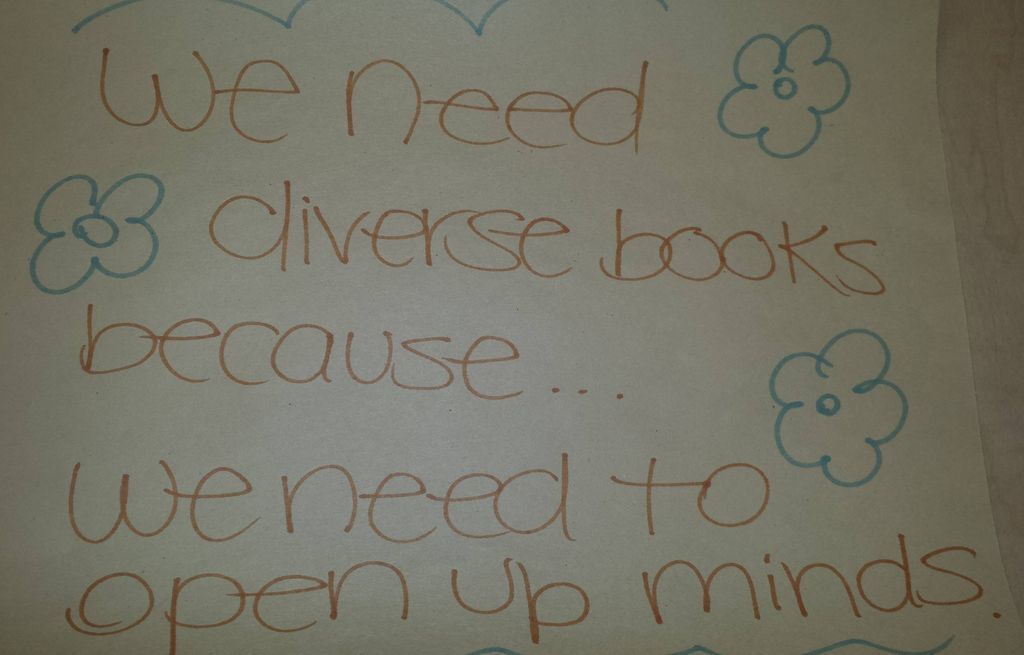 we need
diverse books
because...
we need to
open up minds.